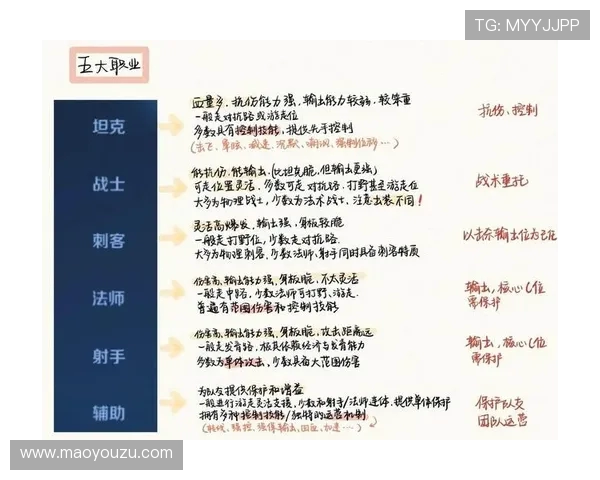 TG: MYYJJPP
五大职业
坦克
血量多，抗伤能力强，输出能力较弱，较笨重
一般走对抗路或游走位
多数具有控制技能，提供先手控制
抗伤、控制
战士
能抗伤，能输出，(比坦克脆，但输出更强)
可走位置灵活，多数可走对抗路、打野甚至游走位
大多为物理战士，少数为法术战士，注意出装不同！
战术重托
刺客
灵活高爆发，输出强，身板较脆
一般走打野位，少数走对抗路.
大多为物理刺客，少数法师、射手同时具备刺客特质
以击杀输出位为己任
法师
伤害高，输出能力强，身板脆，不太灵活
一般走中路，少数法师可打野、游走.
普遍有范围伤害和控制技能
输出，核心C位
需保护
射手
伤害高，输出能力强，身板脆，攻击距离远
一般走发育路，极其依赖经济与发育能力
多数为单体攻击，少数具有大范围伤害
输出，核心C位
需保护
辅助
为队友提供保护和增益
一般进行游走灵活支援，少数和射手/法师连体，提供单体保护
拥有多种控制技能/独特的运营机制
保护队友
团队运营
www.maoyouzu.com